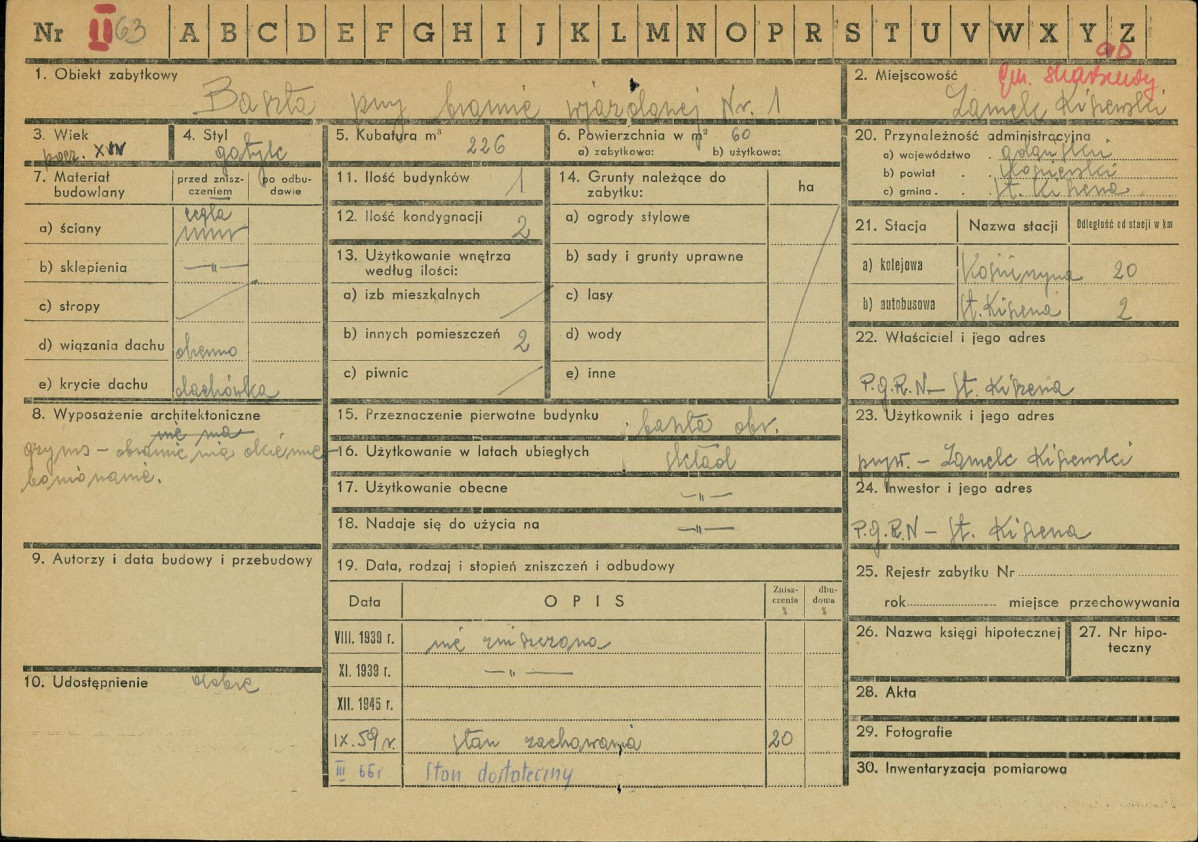 Nr II 63 A B C D E F G H I J K L M N O P R S T U V W X Y Z
1. Obiekt zabytkowy
Baszta przy bramie wjazdowej Nr. 1
2. Miejscowość
gm. Skarszewy
Zamek Kiszewski
3. Wiek
pocz. XIV
4. Styl
gotyk
5. Kubatura m³
226
6. Powierzchnia w m² 60
a) zabytkowa: b) użytkowa:
7. Materiał budowlany
przed zniszczeniem
po odbudowie
a) ściany
cegła
mur
b) sklepienia —"—
c) stropy
d) wiązania dachu
drewno
e) krycie dachu
dachówka
8. Wyposażenie architektoniczne
nie ma
gzyms –
boniowanie.
9. Autorzy i data budowy i przebudowy
10. Udostępnienie dobre
11. Ilość budynków 1
12. Ilość kondygnacji 2
13. Użytkowanie wnętrza
według ilości:
a) izb mieszkalnych
b) innych pomieszczeń 2
c) piwnic
14. Grunty należące do
zabytku:
ha
a) ogrody stylowe
b) sady i grunty uprawne
c) lasy
d) wody
e) inne
15. Przeznaczenie pierwotne budynku baszta obr.
16. Użytkowanie w latach ubiegłych skład
17. Użytkowanie obecne —"—
18. Nadaje się do użycia na —"—
19. Data, rodzaj i stopień zniszczeń i odbudowy
Data
OPIS
Zniszczenia %
dbudowa %
VIII. 1939 r. nie zniszczona
XI. 1939 r. —"—
XII. 1945 r.
IX. 59 r. stan zachowania 20
III 66 r stan dostateczny
20. Przynależność administracyjna
a) województwo . gdański
b) powiat . . kościerski
c) gmina . . St. Kiszewa
21. Stacja
Nazwa stacji
Odległość od stacji w km
a) kolejowa Kościerzyna 20
b) autobusowa St. Kiszewa 2
22. Właściciel i jego adres
P.G.R.N – St. Kiszewa
23. Użytkownik i jego adres
pryw. – Zamek Kiszewski
24. Inwestor i jego adres
P.G.R.N – St. Kiszewa
25. Rejestr zabytku Nr
rok miejsce przechowywania
26. Nazwa księgi hipotecznej
27. Nr hipoteczny
28. Akta
29. Fotografie
30. Inwentaryzacja pomiarowa